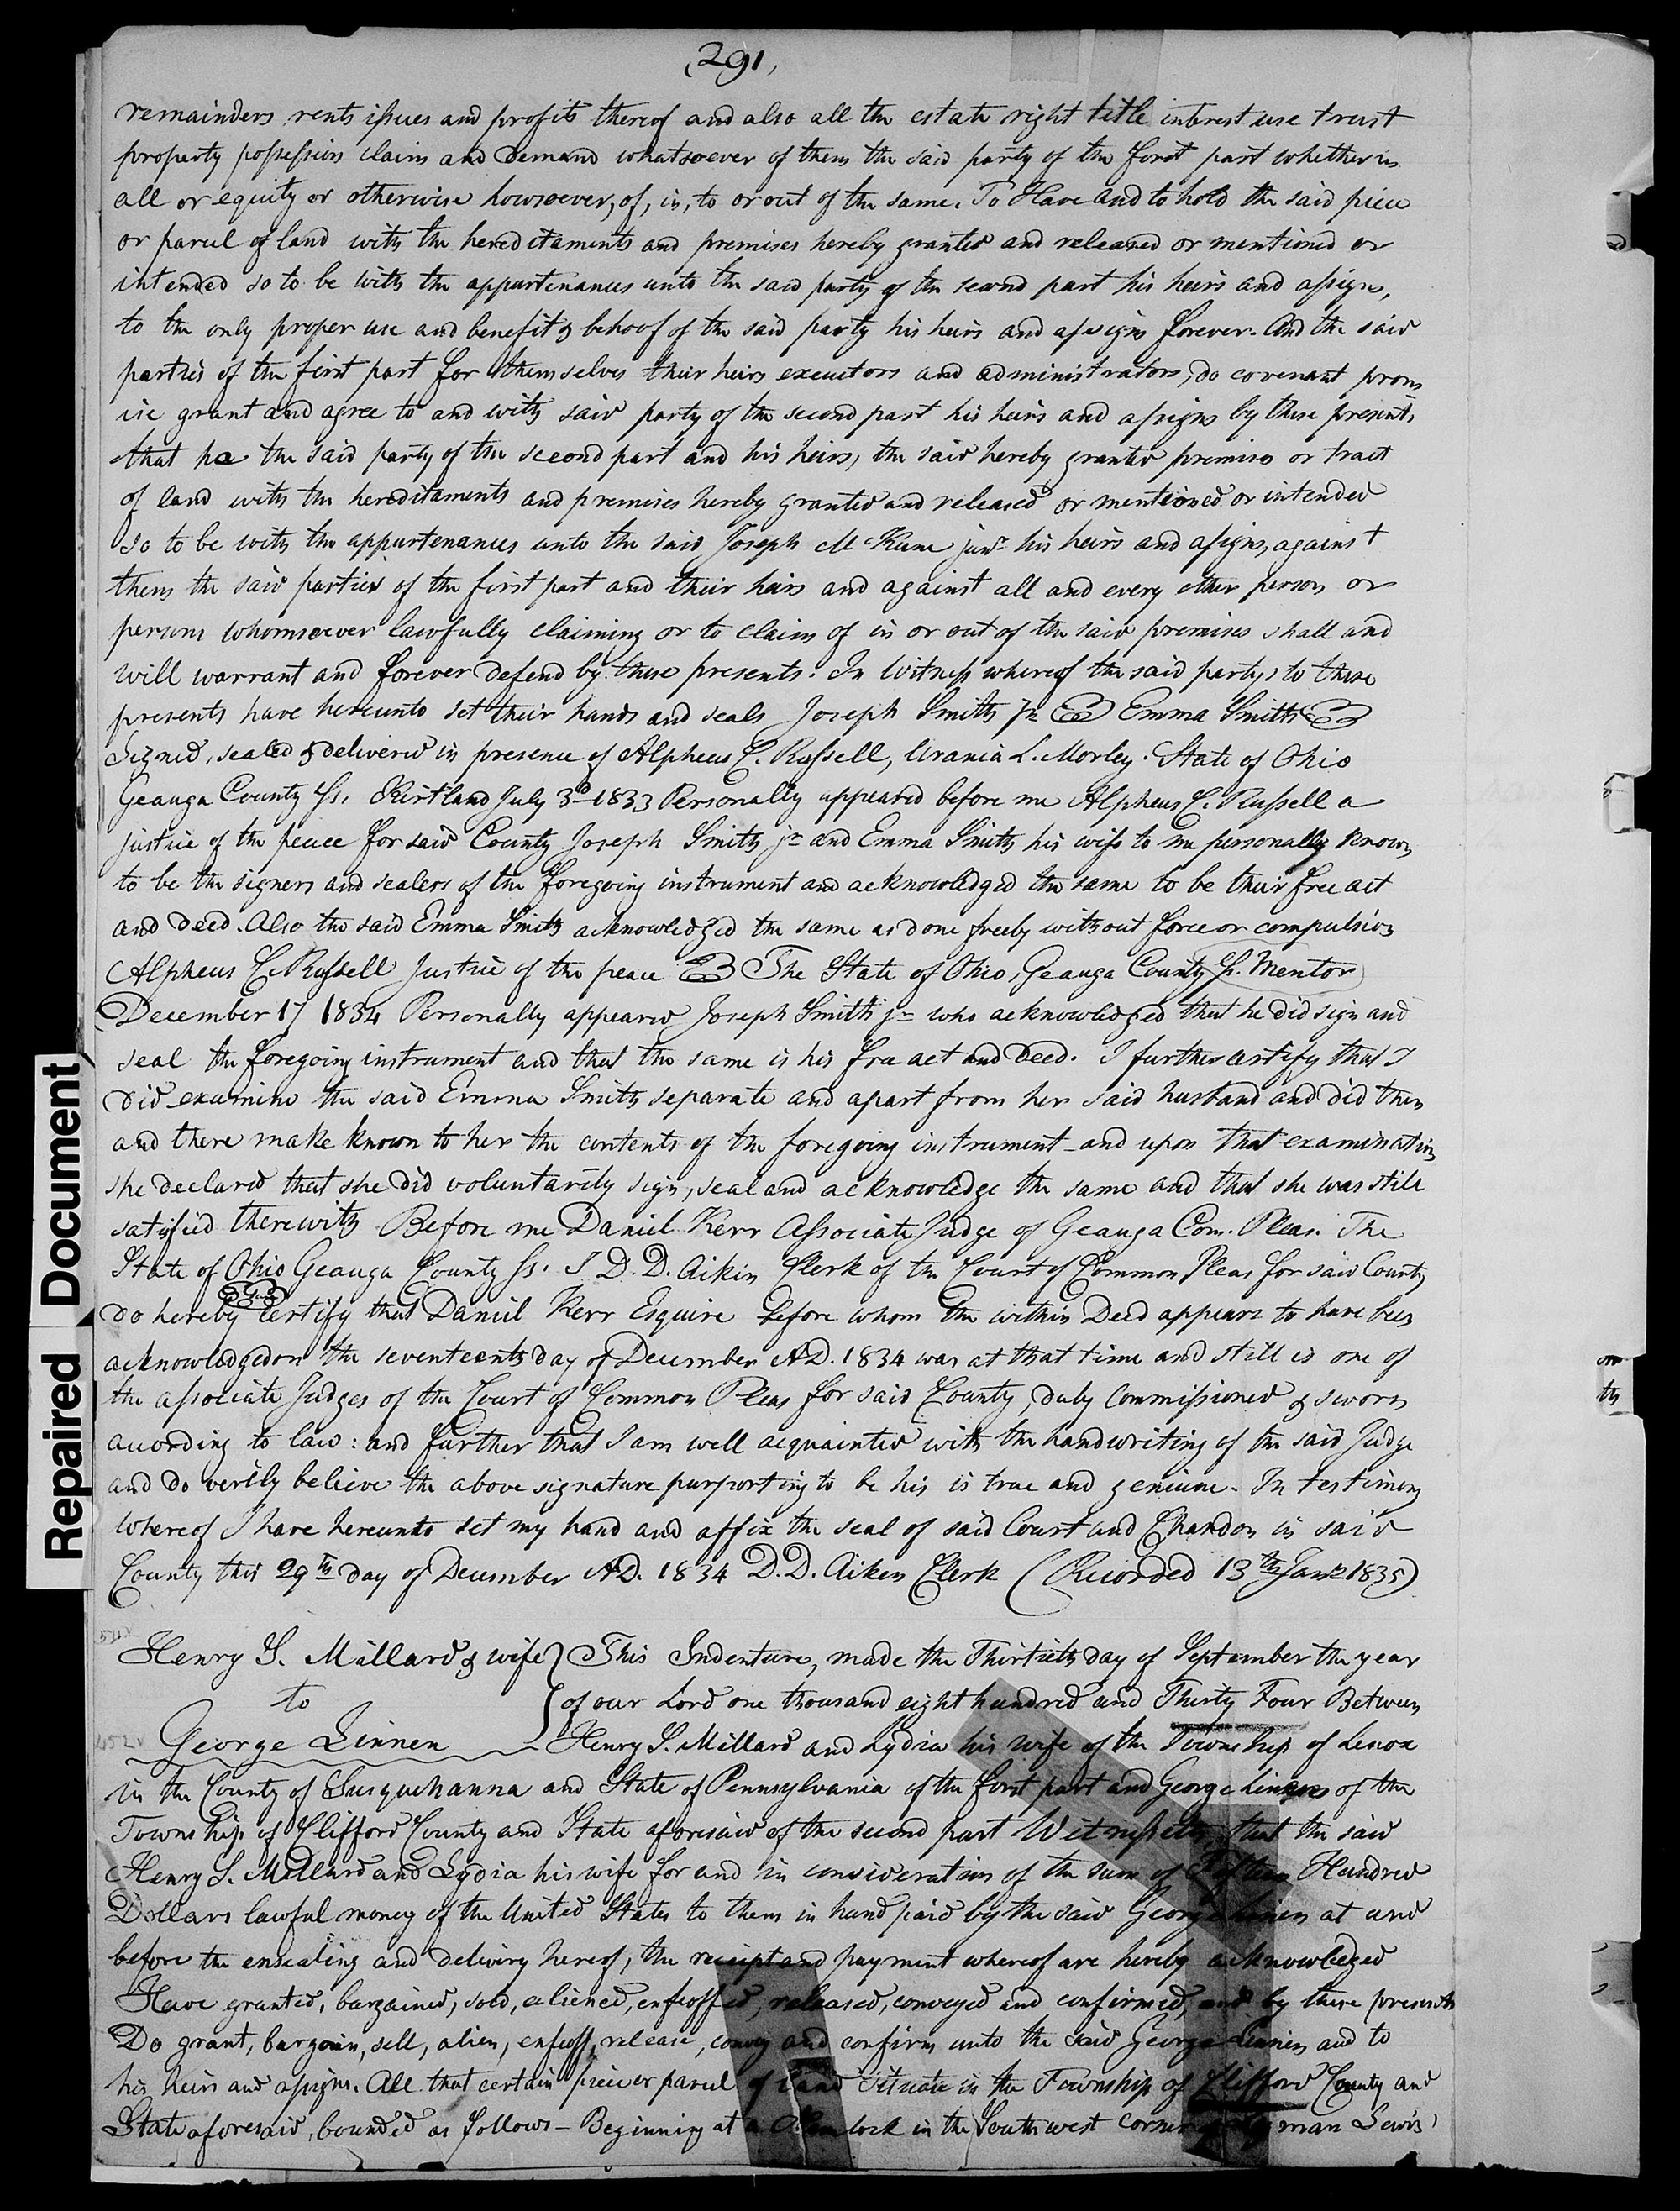 291,
remainders rents issues and profits thereof and also all the estate right title interest use trust
property possession claim and demand whatsoever of them the said party of the first part whether in
all or equity or otherwise howsoever, of, in, to or out of the same. To Have and to hold the said piece
or parcel of land with the hereditaments and premises hereby granted and released or mentioned or
intended so to be with the appurtenances unto the said party of the second part his heirs and assigns,
to the only proper use and benefit & behoof of the said party his heirs and assigns forever. And the said
parties of the first part for themselves their heirs executors and administrators, do covenant prom
ise grant and agree to and with said party of the second part his heirs and assigns by these presents
that he the said party of the second part and his heirs, the said hereby granted premises or tract
of land with the hereditaments and premises hereby granted and released or mentioned or intended
so to be with the appurtenances unto the said Joseph McKune junr his heirs and assigns, against
them the said parties of the first part and their heirs and against all and every other person or
persons whomsoever lawfully claiming or to claim of in or out of the said premises shall and
will warrant and forever defend by these presents. In Witness whereof the said partys to these
presents have hereunto set their hands and seals Joseph Smith Jr Emma Smith
Signed, sealed & delivered in presence of Alpheus C. Russell, Urania L. Morley. State of Ohio
Geauga County Ss. Kirtland July 3d 1833 Personally appeared before me Alpheus C. Russell a
justice of the peace for said County Joseph Smith jr and Emma Smith his wife to me personally known
to be the signers and sealers of the foregoing instrument and acknowledged the same to be their free act
and deed. Also the said Emma Smith acknowledged the same as done freely without force or compulsion
Alpheus C. Russell Justice of the peace The State of Ohio, Geauga County Ss. Mentor
December 17 1834 Personally appeared Joseph Smith jr who acknowledged that he did sign and
seal the foregoing instrument and that the same is his free act and deed. I further certify that I
did examine the said Emma Smith separate and apart from her said husband and did then
and there make known to her the contents of the foregoing instrument and upon that examination
she declared that she did voluntarily sign, seal and acknowledge the same and that she was still
satisfied therewith Before me Daniel Kerr Associate Judge of Geauga Com. Pleas. The
State of Ohio Geauga County Ss. I D. D. Aikin Clerk of the Court of Common Pleas for said County
do hereby certify that Daniel Kerr Esquire before whom the within Deed appears to have been
acknowledged on the seventeenth day of December A.D. 1834 was at that time and still is one of
the associate Judges of the Court of Common Pleas for said County, duly commissioned & sworn
according to law: and further that I am well acquainted with the handwriting of the said Judge
and do verily believe the above signature purporting to be his is true and genuine. In testimony
whereof I have hereunto set my hand and affix the seal of said Court and Chardon in said
County this 29th day of December A.D. 1834 D.D. Aiken Clerk (Recorded 13th Janr 1835)
Henry S. Millard & wife
to
George Linnen
This Indenture, made the Thirtieth day of September the year
of our Lord one thousand eight hundred and Thirty Four Between
Henry S. Millard and Lydia his wife of the Township of Lenox
in the County of Susquehanna and State of Pennsylvania of the first part and George Linnen of the
Township of Clifford County and State aforesaid of the second part Witnesseth, that the said
Henry S. Millard and Lydia his wife for and in consideration of the sum of Fifteen Hundred
Dollars lawful money of the United States to them in hand paid by the said George Linen at and
before the ensealing and delivery hereof, the receipt and payment whereof are hereby acknowledged
Have granted, bargained, sold, aliened, enfeoffed, released, conveyed and confirmed, and by these presents
Do grant, bargain, sell, alien, enfeoff, release, convey and confirm unto the said George Linnen and to
his heirs and assigns. All that certain piece or parcel of land situate in the Township of Clifford County and
State aforesaid, bounded as follows - Beginning at a Hemlock in the South west corner of Lyman Lewis'
Repaired Document